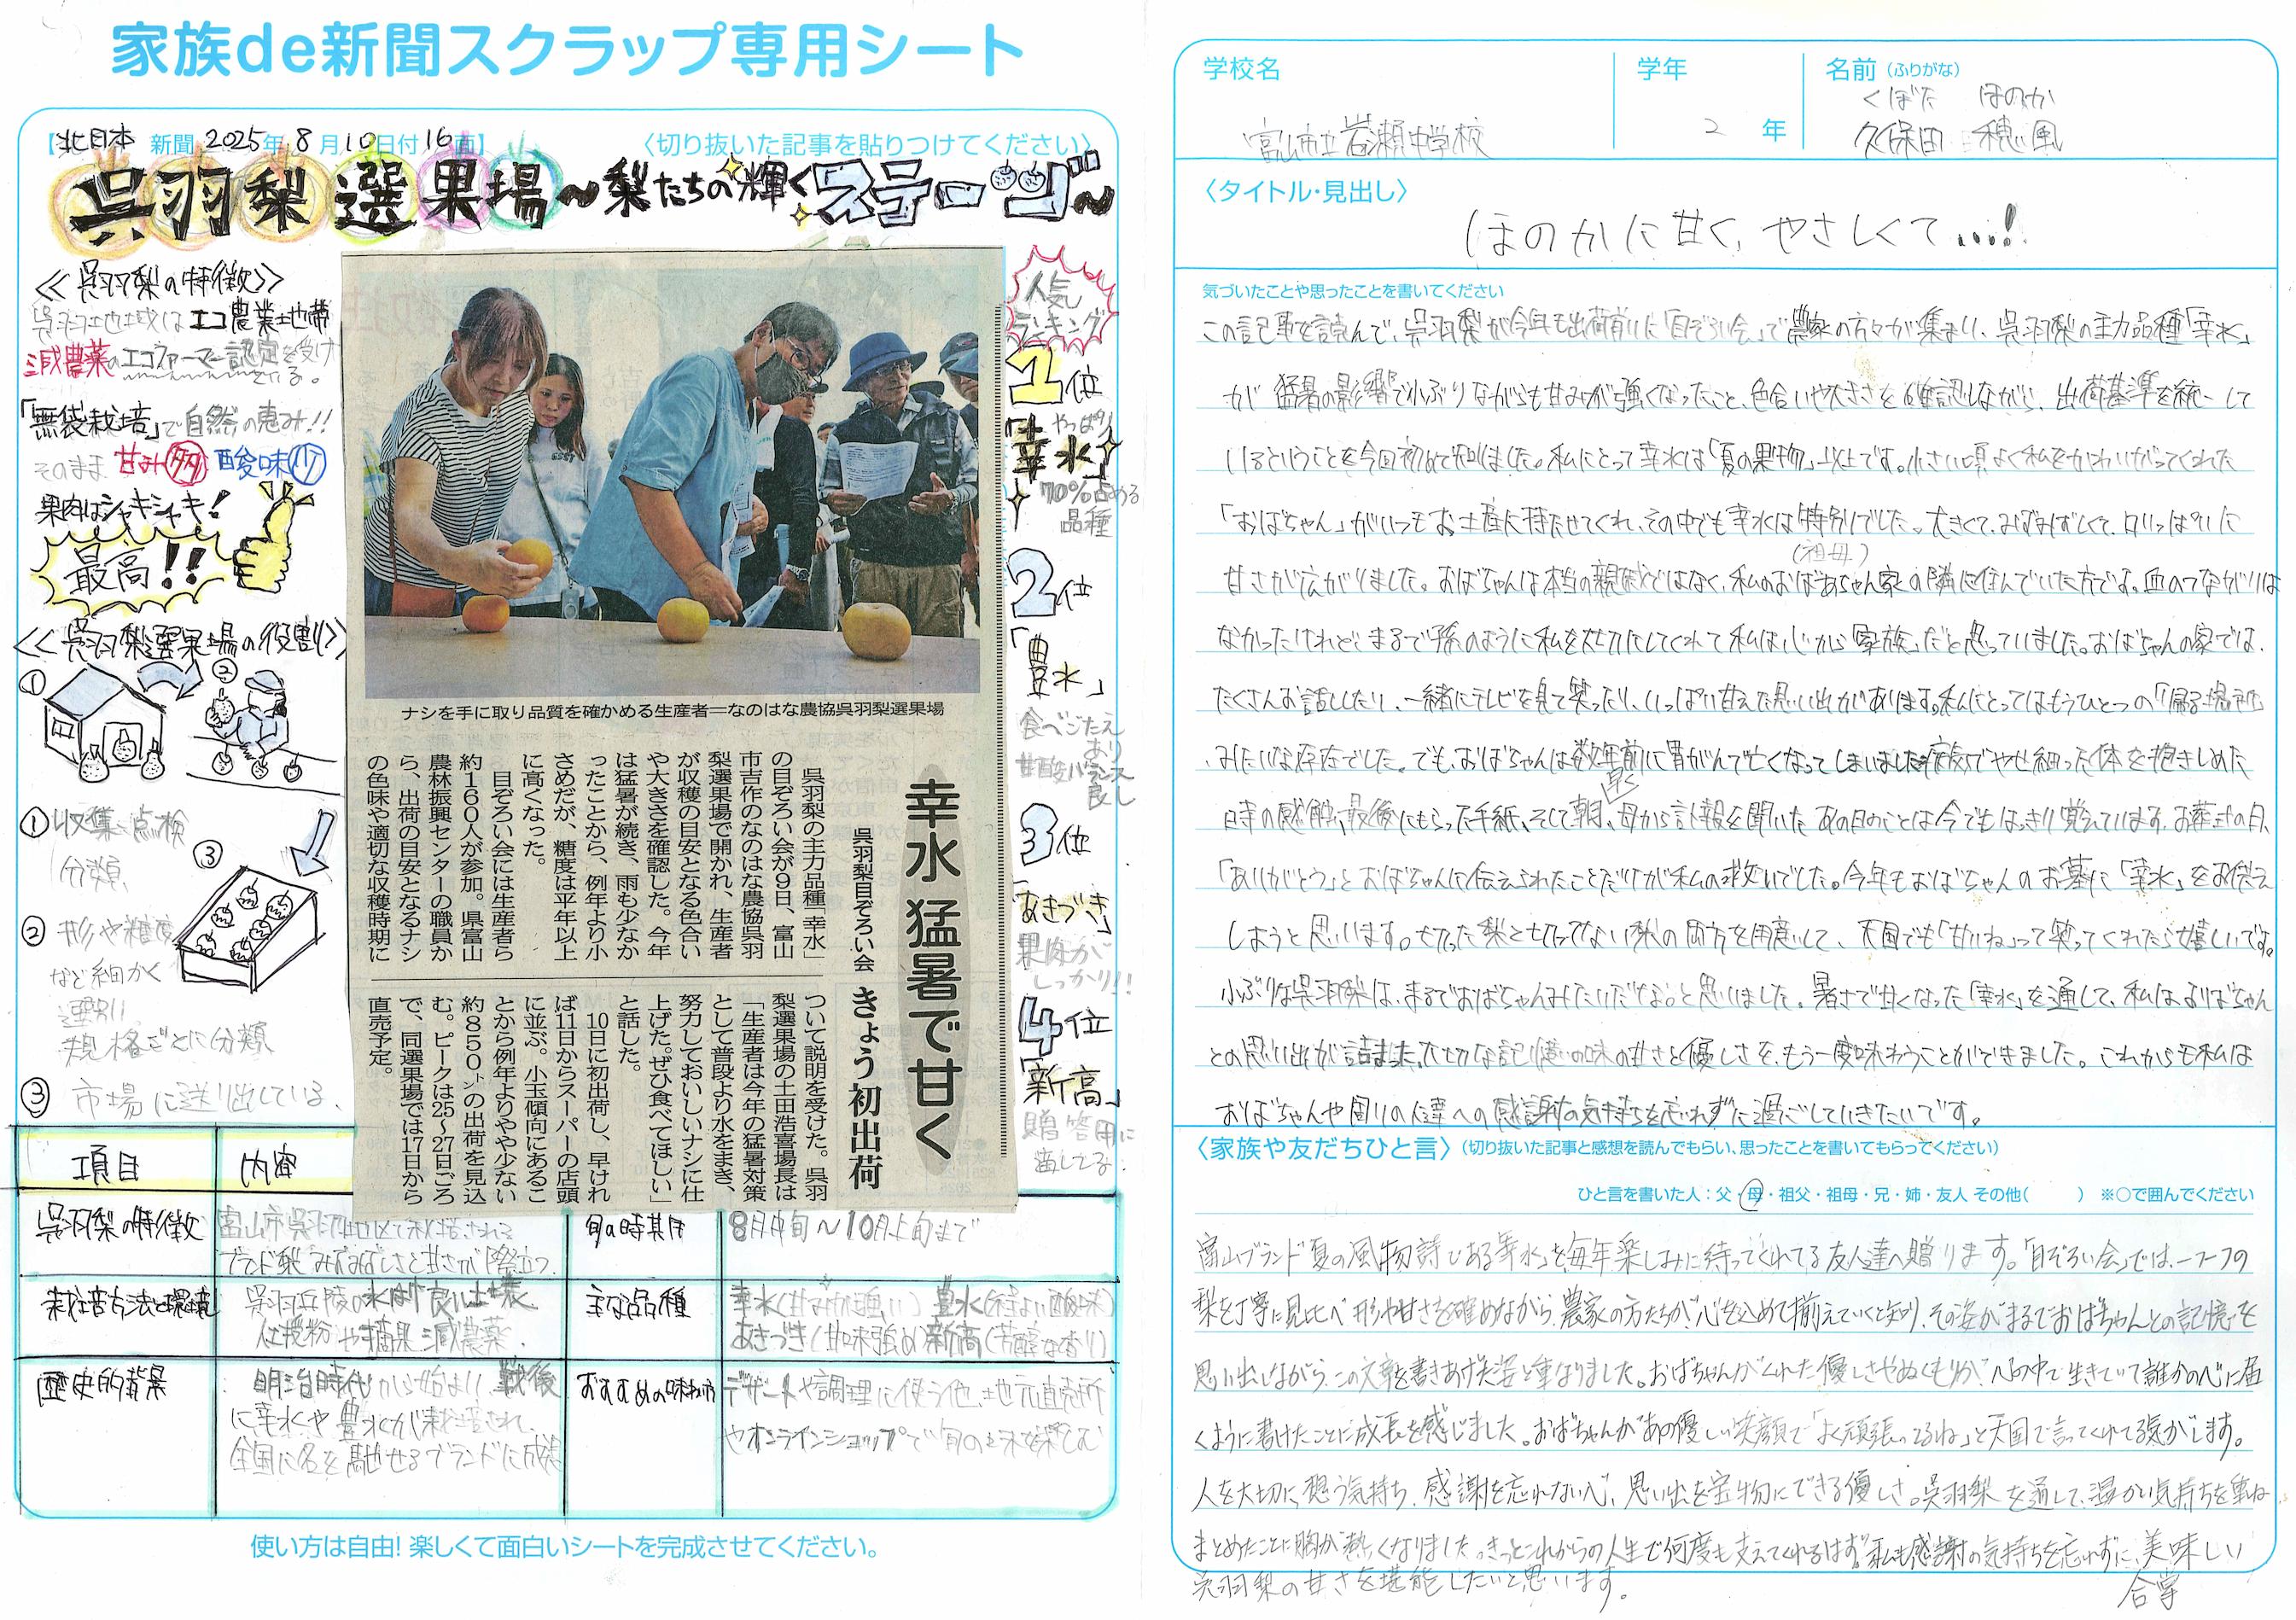 家族de新聞スクラップ専用シート
【北日本 新聞 2025年 8月10日付 16面】
〈切り抜いた記事を貼りつけてください〉
呉羽梨選果場〜梨たちの輝くステージ〜
≪呉羽梨の特徴≫
呉羽地域はエコ農業地帯
減農薬のエコファーマー認定を受けている。
「無袋栽培」で自然の恵み!!
そのまま 甘み多 酸味少
果肉はシャキシャキ!
最高!!
≪呉羽梨選果場の役割≫
①
②
③
①収集・点検
分類
②形や糖度
など細かく
選別
規格ごとに分類
③市場に送り出している。
ナシを手に取り品質を確かめる生産者=なのはな農協呉羽梨選果場
幸水 猛暑で甘く
呉羽梨目ぞろい会 きょう初出荷
呉羽梨の主力品種「幸水」
の目ぞろい会が9日、富山
市吉作のなのはな農協呉羽
梨選果場で開かれ、生産者
が収穫の目安となる色合い
や大きさを確認した。今年
は猛暑が続き、雨も少なか
ったことから、例年より小
さめだが、糖度は平年以上
に高くなった。
目ぞろい会には生産者ら
約160人が参加。県富山
農林振興センターの職員か
ら、出荷の目安となるナシ
の色味や適切な収穫時期に
ついて説明を受けた。呉羽
梨選果場の土田浩喜場長は
「生産者は今年の猛暑対策
として普段より水をまき、
努力しておいしいナシに仕
上げた。ぜひ食べてほしい」
と話した。
10日に初出荷し、早けれ
ば11日からスーパーの店頭
に並ぶ。小玉傾向にあるこ
とから例年よりやや少ない
約850トンの出荷を見込
む。ピークは25〜27日ごろ
で、同選果場では17日から
直売予定。
人気ランキング
1位
やっぱり
「幸水」
70%占める
品種
2位
「豊水」
食べごたえ
あり
甘酸バランス
良し
3位
「あきづき」
果肉が
しっかり!!
4位
「新高」
贈答用に
適してる。
項目
内容
呉羽梨の特徴
富山市呉羽地区で栽培される
ブランド梨 みずみずしさと甘さが際立つ
旬の時期
8月中旬〜10月上旬まで
栽培方法と環境
呉羽丘陵の水はけ良い土壌
人工授粉や摘果・減農薬
主な品種
幸水(甘みが強い) 豊水(程よい酸味)
あきづき(甘味強め) 新高(芳醇な香り)
歴史的背景
明治時代から始まり、戦後
に幸水や豊水が栽培され、
全国に名を馳せるブランドに成長
おすすめの味わい方
デザートや調理に使う他、地元直売所
やオンラインショップで旬の味を楽しむ
使い方は自由! 楽しくて面白いシートを完成させてください。
学校名
富山市立岩瀬中学校
学年
2 年
名前(ふりがな)
くぼた ほのか
久保田 穂風
〈タイトル・見出し〉
ほのかに甘く、やさしくて…!
気づいたことや思ったことを書いてください
この記事を読んで、呉羽梨が今年も出荷前に「目ぞろい会」で農家の方々が集まり、呉羽梨の主力品種「幸水」
が猛暑の影響で小ぶりながらも甘みが強くなったこと、色合いや大きさを確認しながら、出荷基準を統一して
いるということを今回初めて知りました。私にとって幸水は「夏の果物」以上です。小さい頃よく私をかわいがってくれた
「おばちゃん」がいつもお土産に持たせてくれ、その中でも幸水は特別でした。大きくて、みずみずしくて、口いっぱいに
甘さが広がりました。おばちゃんは本当の親族ではなく、私のおばあちゃん(祖母)家の隣に住んでいた方です。血のつながりは
なかったけれど、まるで孫のように私を大切にしてくれて私は心から「家族」だと思っていました。おばちゃんの家では、
たくさんお話ししたり、一緒にテレビを見て笑ったり、いっぱい甘えた思い出があります。私にとってはもうひとつの「帰る場所」
みたいな存在でした。でも、おばちゃんは数年前に胃がんで亡くなってしまいました。病気でやせ細った体を抱きしめた
時の感触、最後にもらった手紙、そして朝早く、母から訃報を聞いたあの日のことは今でもはっきり覚えています。お葬式の日、
「ありがとう」とおばちゃんに伝えられたことだけが私の救いでした。今年もおばちゃんのお墓に「幸水」をお供え
しようと思います。切った梨と切ってない梨の両方を用意して、天国でも「甘いね」って笑ってくれたら嬉しいです。
小ぶりな呉羽梨は、まるでおばちゃんみたいだな。と思いました。暑さで甘くなった「幸水」を通して、私はおばちゃん
との思い出が詰まった大切な記憶の味の甘さと優しさを、もう一度味わうことができました。これからも私は
おばちゃんや周りの人達への感謝の気持ちを忘れずに過ごしていきたいです。
〈家族や友だちひと言〉(切り抜いた記事と感想を読んでもらい、思ったことを書いてもらってください)
ひと言を書いた人:父・母・祖父・祖母・兄・姉・友人 その他( ) ※○で囲んでください
富山ブランド夏の風物詩である「幸水」を毎年楽しみに待ってくれてる友人達へ贈ります。「目ぞろい会」では、一つ一つの
梨を丁寧に見比べ形や甘さを確めながら、農家の方たちが心を込めて揃えていくと知り、その姿がまるでおばちゃんとの記憶を
思い出しながら、この文章を書きあげた姿と重なりました。おばちゃんがくれた優しさやぬくもりが、心の中で生きていて誰かの心に届
くように書けたことに成長を感じました。おばちゃんがあの優しい笑顔で「よく頑張ってるね」と天国で言ってくれてる気がします。
人を大切に想う気持ち、感謝を忘れない心、思い出を宝物にできる優しさ。呉羽梨を通して、温かい気持ちを重ね
まとめたことに胸が熱くなりました。きっとこれからの人生で何度も支えてくれるはず。私も感謝の気持ちを忘れずに、美味しい
呉羽梨の甘さを堪能したいと思います。
合掌